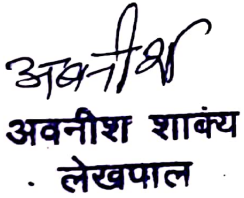 अवनीश
अवनीश शाक्य
लेखपाल